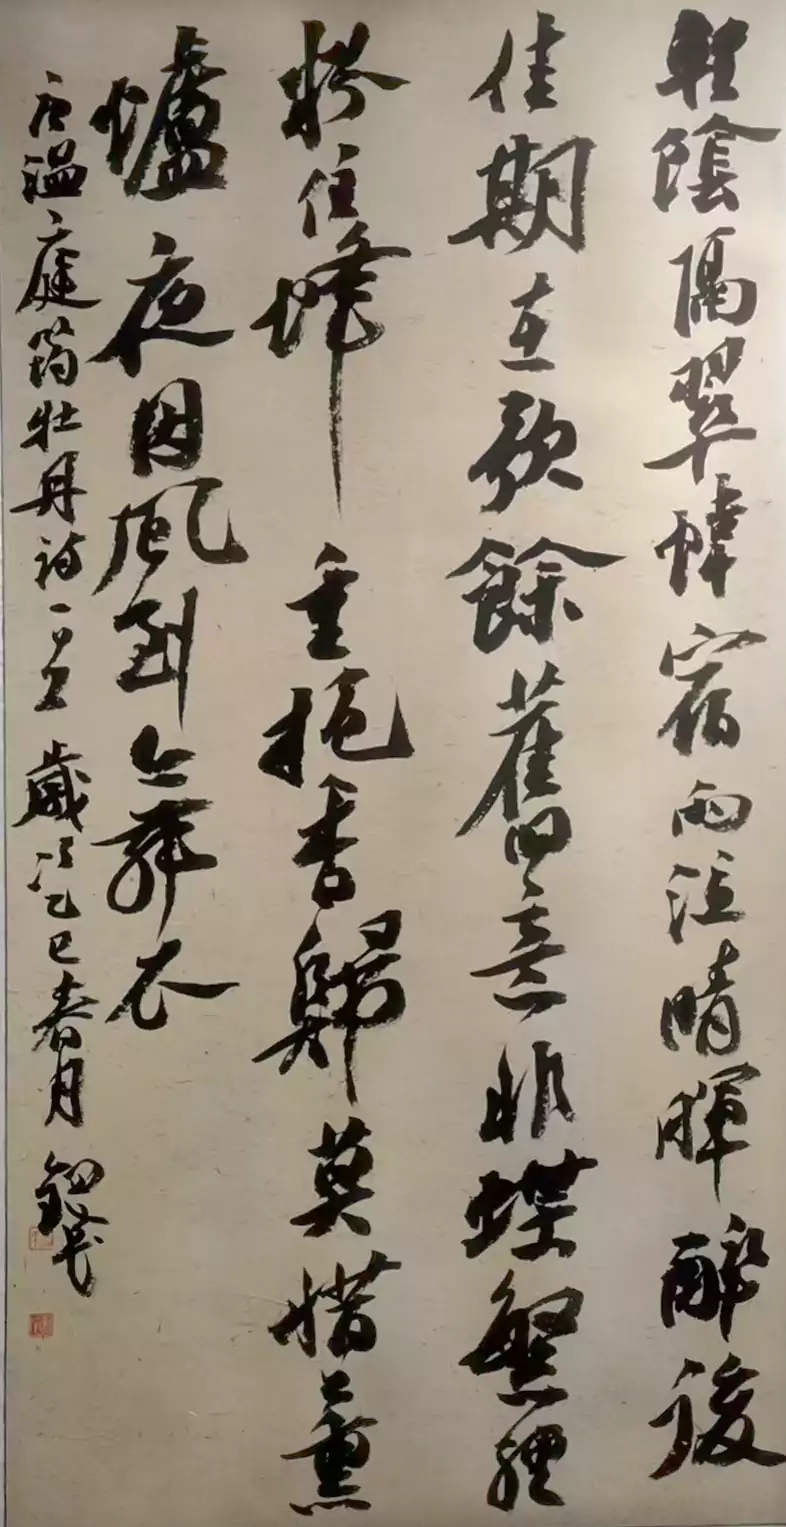 輕陰隔翠幃宿雨泣晴暉醉後
佳期在歌餘舊意非蝶繁經
粉住蜂重抱香歸莫惜薰
爐夜因風到舞衣
唐温庭筠牡丹詩一首歲次乙巳春月